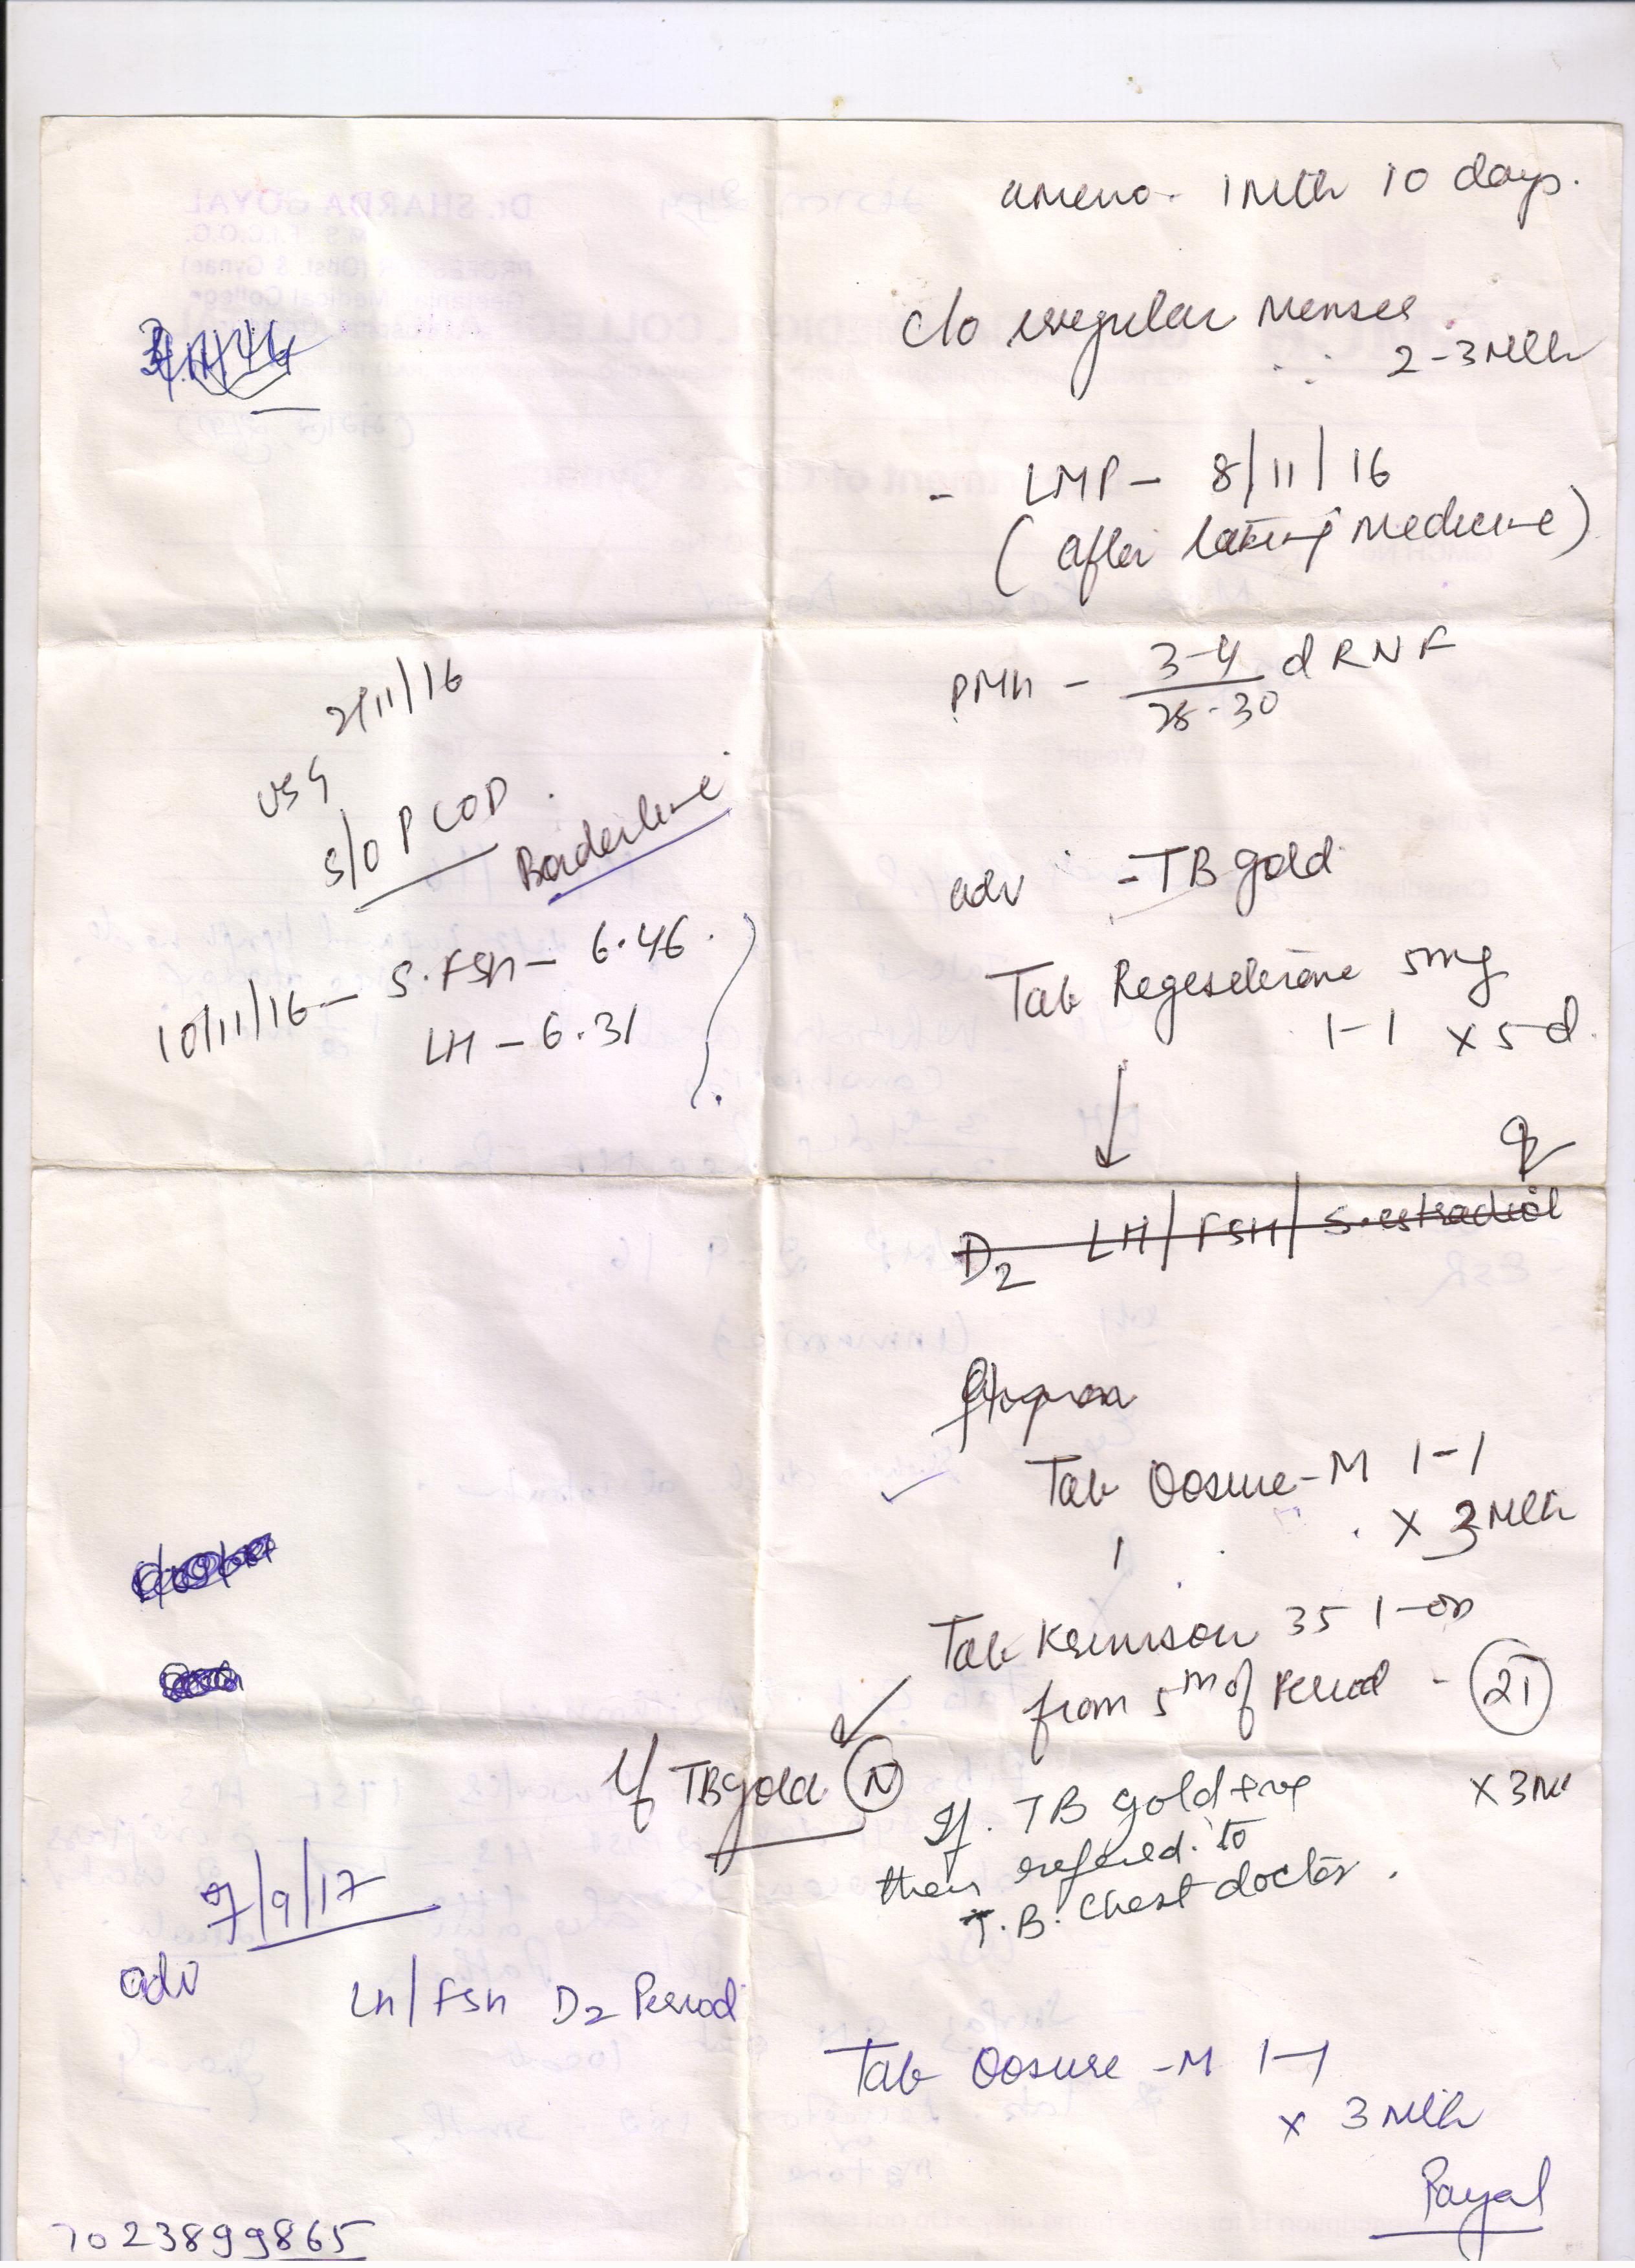 ameno - 1 Mth 10 days.
c/o irregular Menses
2-3 Mth
- LMP - 8/11/16
(after taking Medicine)
PMH - 3-4 d RNF
28-30
adv - TB gold
Tab Regesterone 5mg
1-1 x 5 d.
D2 LH/FSH/S.estradiol
Tab Oosure-M 1-1
x 3 Mth
Tab Krimson 35 1-OD
from 5th of Period - 21
x 3 M
If TB gold N
If. TB gold +ve
then refered to
T.B. Chest doctor.
2/11/16
USG
S/O PCOD
Borderline
10/11/16 - S.FSH - 6.46.
LH - 6.31
7/9/17
adv
LH/FSH D2 Period
Tab Oosure -M 1-1
x 3 Mth
Payal
7023899865